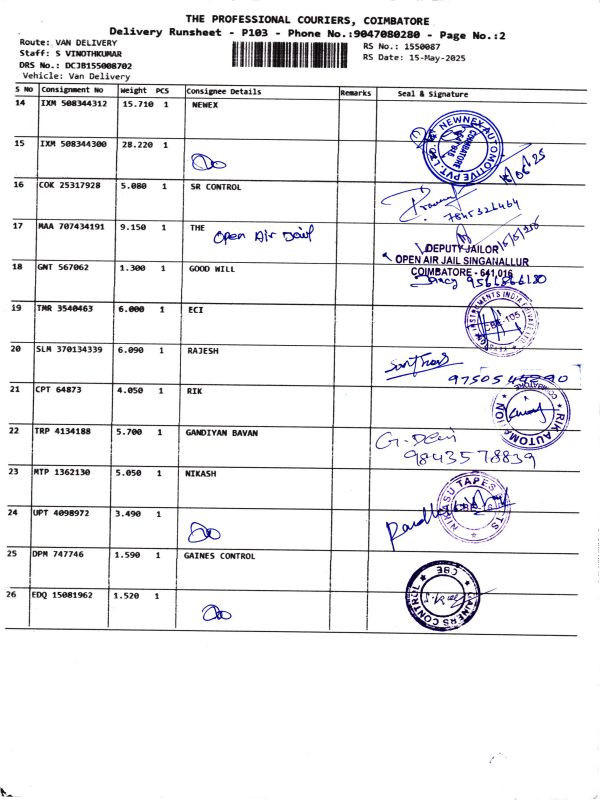 THE PROFESSIONAL COURIERS, COIMBATORE
Delivery Runsheet - P103 - Phone No.:9047080280 - Page No.:2
Route: VAN DELIVERY
RS No.: 1550087
Staff: S VINOTHKUMAR
RS Date: 15-May-2025
DRS No.: DCJB155008702
Vehicle: Van Delivery
S No Consignment No Weight PCS Consignee Details Remarks Seal & Signature
14 IXM 508344312 15.710 1 NEWEX
NEWNEX AUTOMOTIVE PVT.
COIMBATORE
641 015
15 IXM 508344300 28.220 1
16 COK 25317928 5.080 1 SR CONTROL
17 MAA 707434191 9.150 1 THE
Open Air Jail
DEPUTY JAILOR
OPEN AIR JAIL SINGANALLUR
COIMBATORE - 641 016
18 GNT 567062 1.300 1 GOOD WILL
19 TMR 3540463 6.000 1 ECI
20 SLM 370134339 6.090 1 RAJESH
21 CPT 64873 4.050 1 RIK
RIK AUTOMA
COIMBATORE
22 TRP 4134188 5.700 1 GANDIYAN BAVAN
G. Devi
9843578839
23 MTP 1362130 5.050 1 NIKASH
24 UPT 4098972 3.490 1
25 DPM 747746 1.590 1 GAINES CONTROL
CBE
GAINERS CONTROL
26 EDQ 15081962 1.520 1